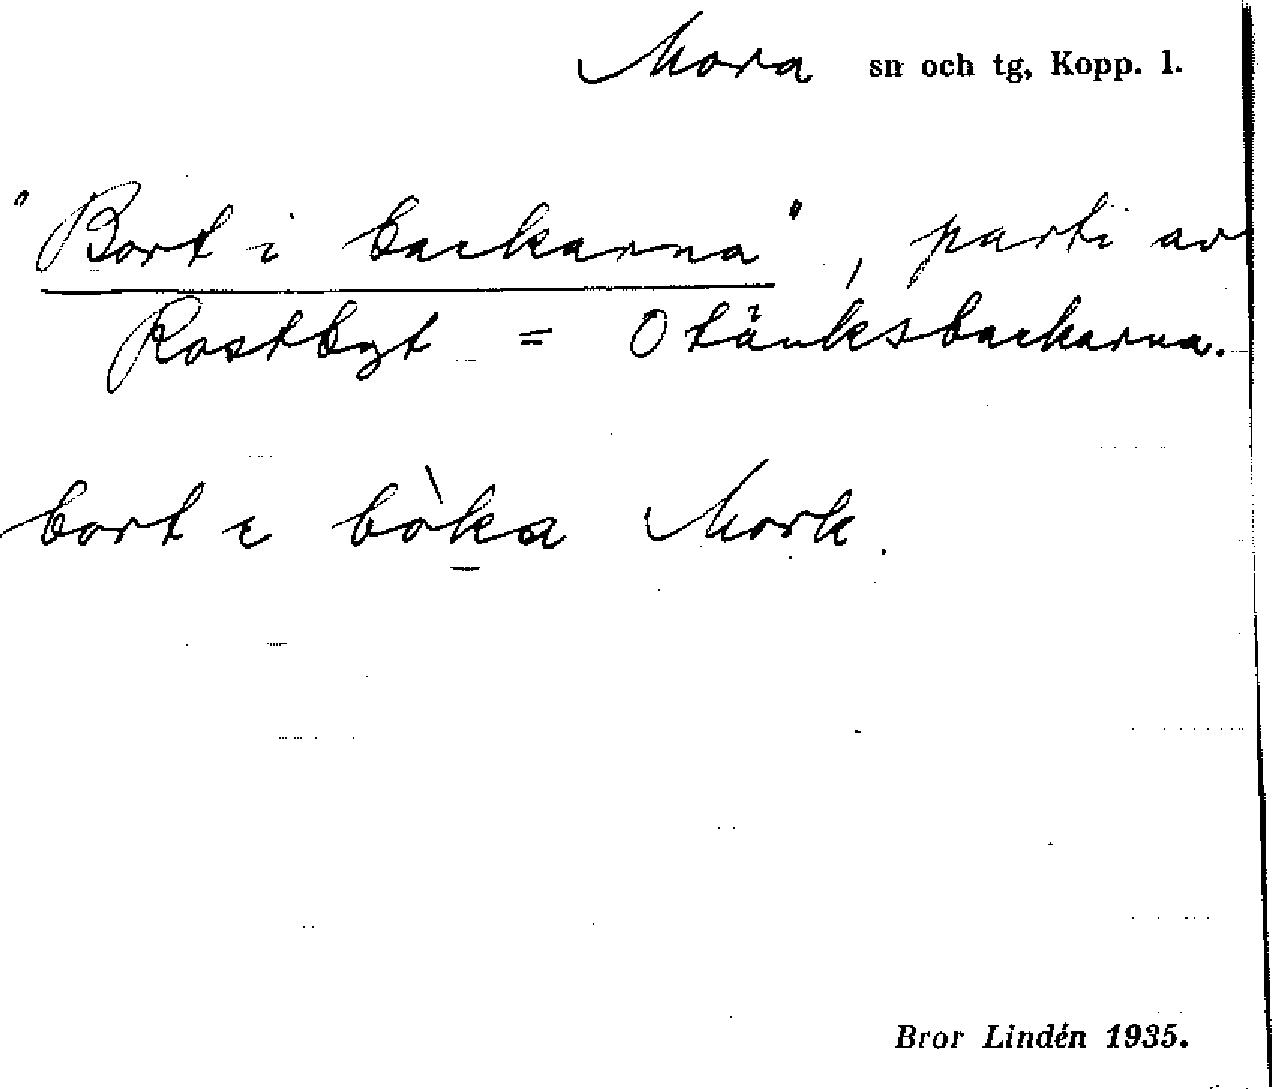 Mora sn och tg, Kopp. l.
"Bort i backarna", parti av
Rostbyt = Otänksbackarna.
bort i bòka Mork.
Bror Lindén 1935.